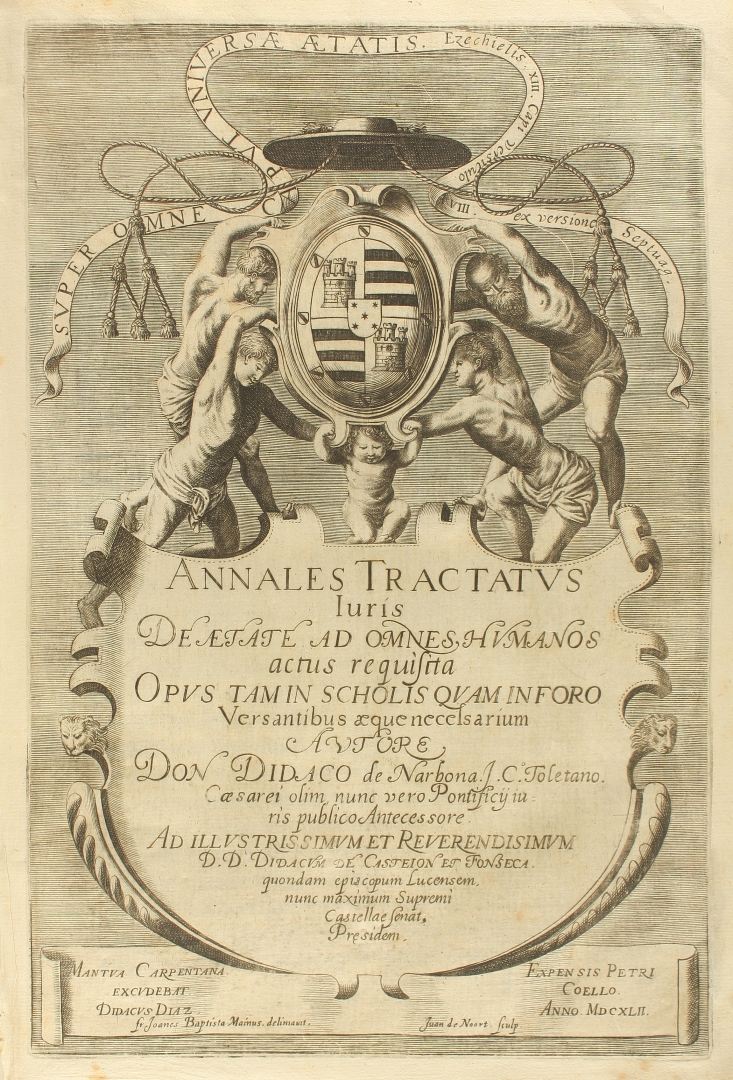 SVPER OMNE CAPVT VNIVERSÆ ÆTATIS. Ezechielis. XIII. Capi Versiculo XVIII. ex versione Septuag.
ANNALES TRACTATVS
Iuris
DE ÆTATE AD OMNES, HVMANOS
actus requiſita
OPVS TAM IN SCHOLIS QVAM IN FORO
Versantibus æque neceſsarium
AVTORE
DON DIDACO de Narbona. J. C.o Toletano.
Cæsarei olim, nunc vero Pontificij iu=
ris publico Antecessore.
AD ILLVSTRISSIMVM ET REVERENDISIMVM
D. D. DIDACVM DE CASTEION ET FONSECA.
quondam episcopum Lucensem,
nunc maximum Supremi
Castellae ſenat,
Pręsidem.
MANTVA CARPENTANA
EXCVDEBAT
DIDACVS DIAZ
fr. Joanes Baptista Mainus. delineauit.
EXPENSIS PETRI
COELLO.
ANNO. MDCXLII.
Juan de Noort. ſculp